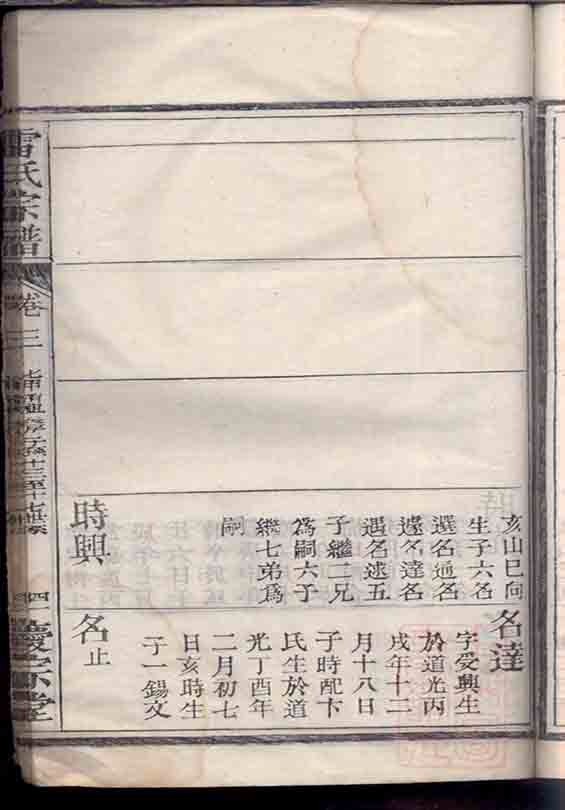 亥山巳向
生子六名
選名適名
遽名達名
遇名逑五
子繼二兄
為嗣六子
繼七弟為
嗣
時興
名達
字受興生
於道光丙
戌年十二
月十八日
子時配卞
氏生於道
光丁酉年
二月初七
日亥時生
子一錫文
名止
雷氏宗譜
卷三